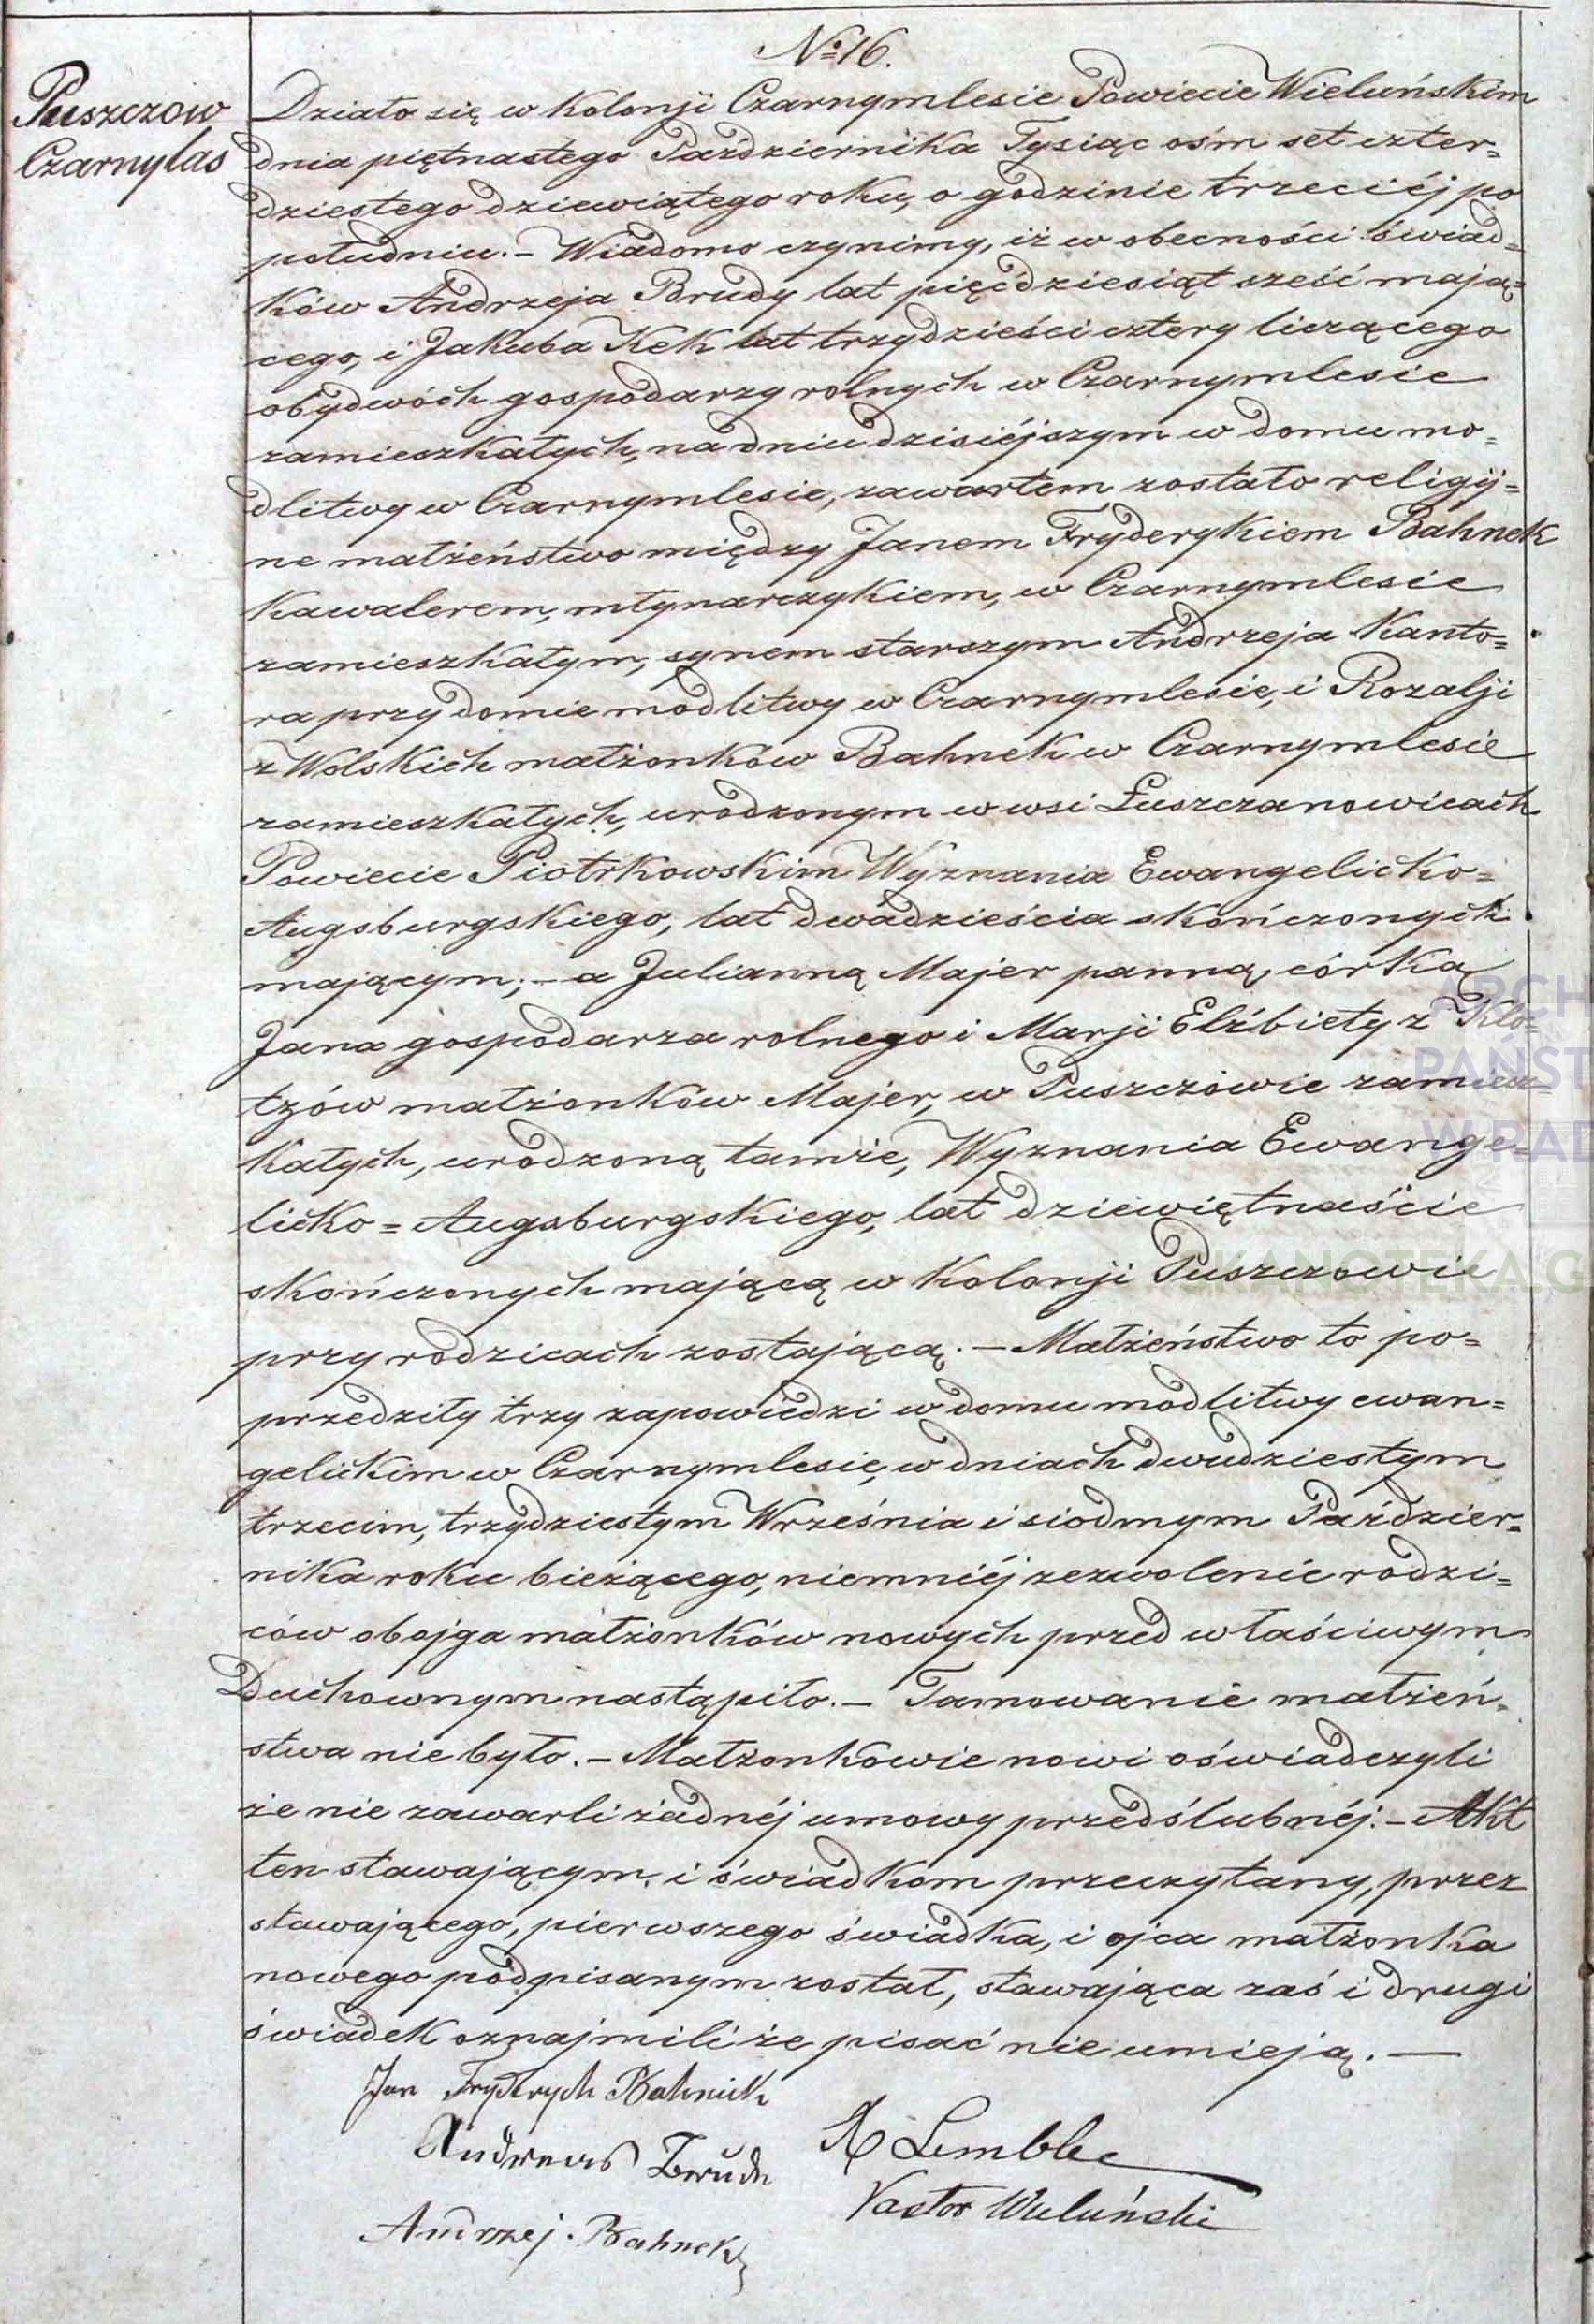 № 16.
Puszczow
Czarnylas
Działo się w Kolonji Czarnymlesie Powiecie Wieluńskim
dnia piętnastego Pazdziernika Tysiąc ośm set czter=
dziestego dziewiątego roku, o godzinie trzeciéj po
południu. – Wiadomo czynimy, iż w obecności świad=
ków Andrzeja Brudy lat pięćdziesiąt sześć mają=
cego, i Jakuba Kek lat trzydzieści cztery liczącego
obydwóch gospodarzy rolnych w Czarnymlesie
zamieszkałych, na dniu dzisiéjszym w domu mo=
dlitwy w Czarnymlesie, zawartem zostało religij=
ne małżeństwo między Janem Fryderykiem Bahnek
Kawalerem, młynarczykiem, w Czarnymlesie
zamieszkałym, synem starszym Andrzeja Kanto=
ra przy domie modlitwy w Czarnymlesie, i Rozalji
z Wolskich małżonków Bahnek w Czarnymlesie
zamieszkałych, urodzonym w wsi Łuszczanowicach
Powiecie Piotrkowskim Wyznania Ewangelicko=
Augsburgskiego, lat dwadzieścia skończonych
mającym; – a Julianną Majer panną, córką
Jana gospodarza rolnego i Marji Elżbiety z Klo=
tzów małżonków Majer, w Puszczowie zamiesz=
kałych, urodzoną tamże, Wyznania Ewange=
licko=Augsburgskiego, lat dziewiętnaście
skończonych mającą w Kolonji Puszczowie
przy rodzicach zostającą. – Małżeństwo to po=
przedziły trzy zapowiedzi w domu modlitwy ewan=
gelickim w Czarnymlesie, w dniach dwudziestym
trzecim, trzydziestym Września i siodmym Paździer=
nika roku bieżącego, niemniéj zezwolenie rodzi=
ców obojga małżonków nowych przed właściwym
Duchownym nastąpiło. – Tamowanie małżeń=
stwa nie było. – Małżonkowie nowi oświadczyli
że nie zawarli żadnéj umowy przedślubnéj. – Akt
ten stawającym, i świadkom przeczytany, przez
stawającego, pierwszego świadka, i ojca małżonka
nowego podpisanym został, stawająca zaś i drugi
świadek oznajmili że pisać nie umieją. —
Jan Fryderych Bahnick
Andreas Bruda
A Lemble
Pastor Wieluński
Andrzej Bahnek
ARCH
PAŃST
W RAD
SKANOTEKA.G